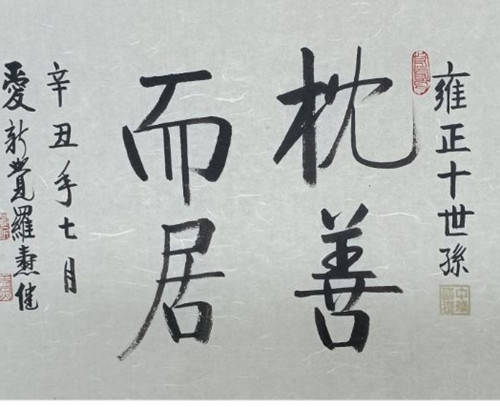 雍正十世孫
枕善
而居
辛丑年七月
愛新覺羅 健